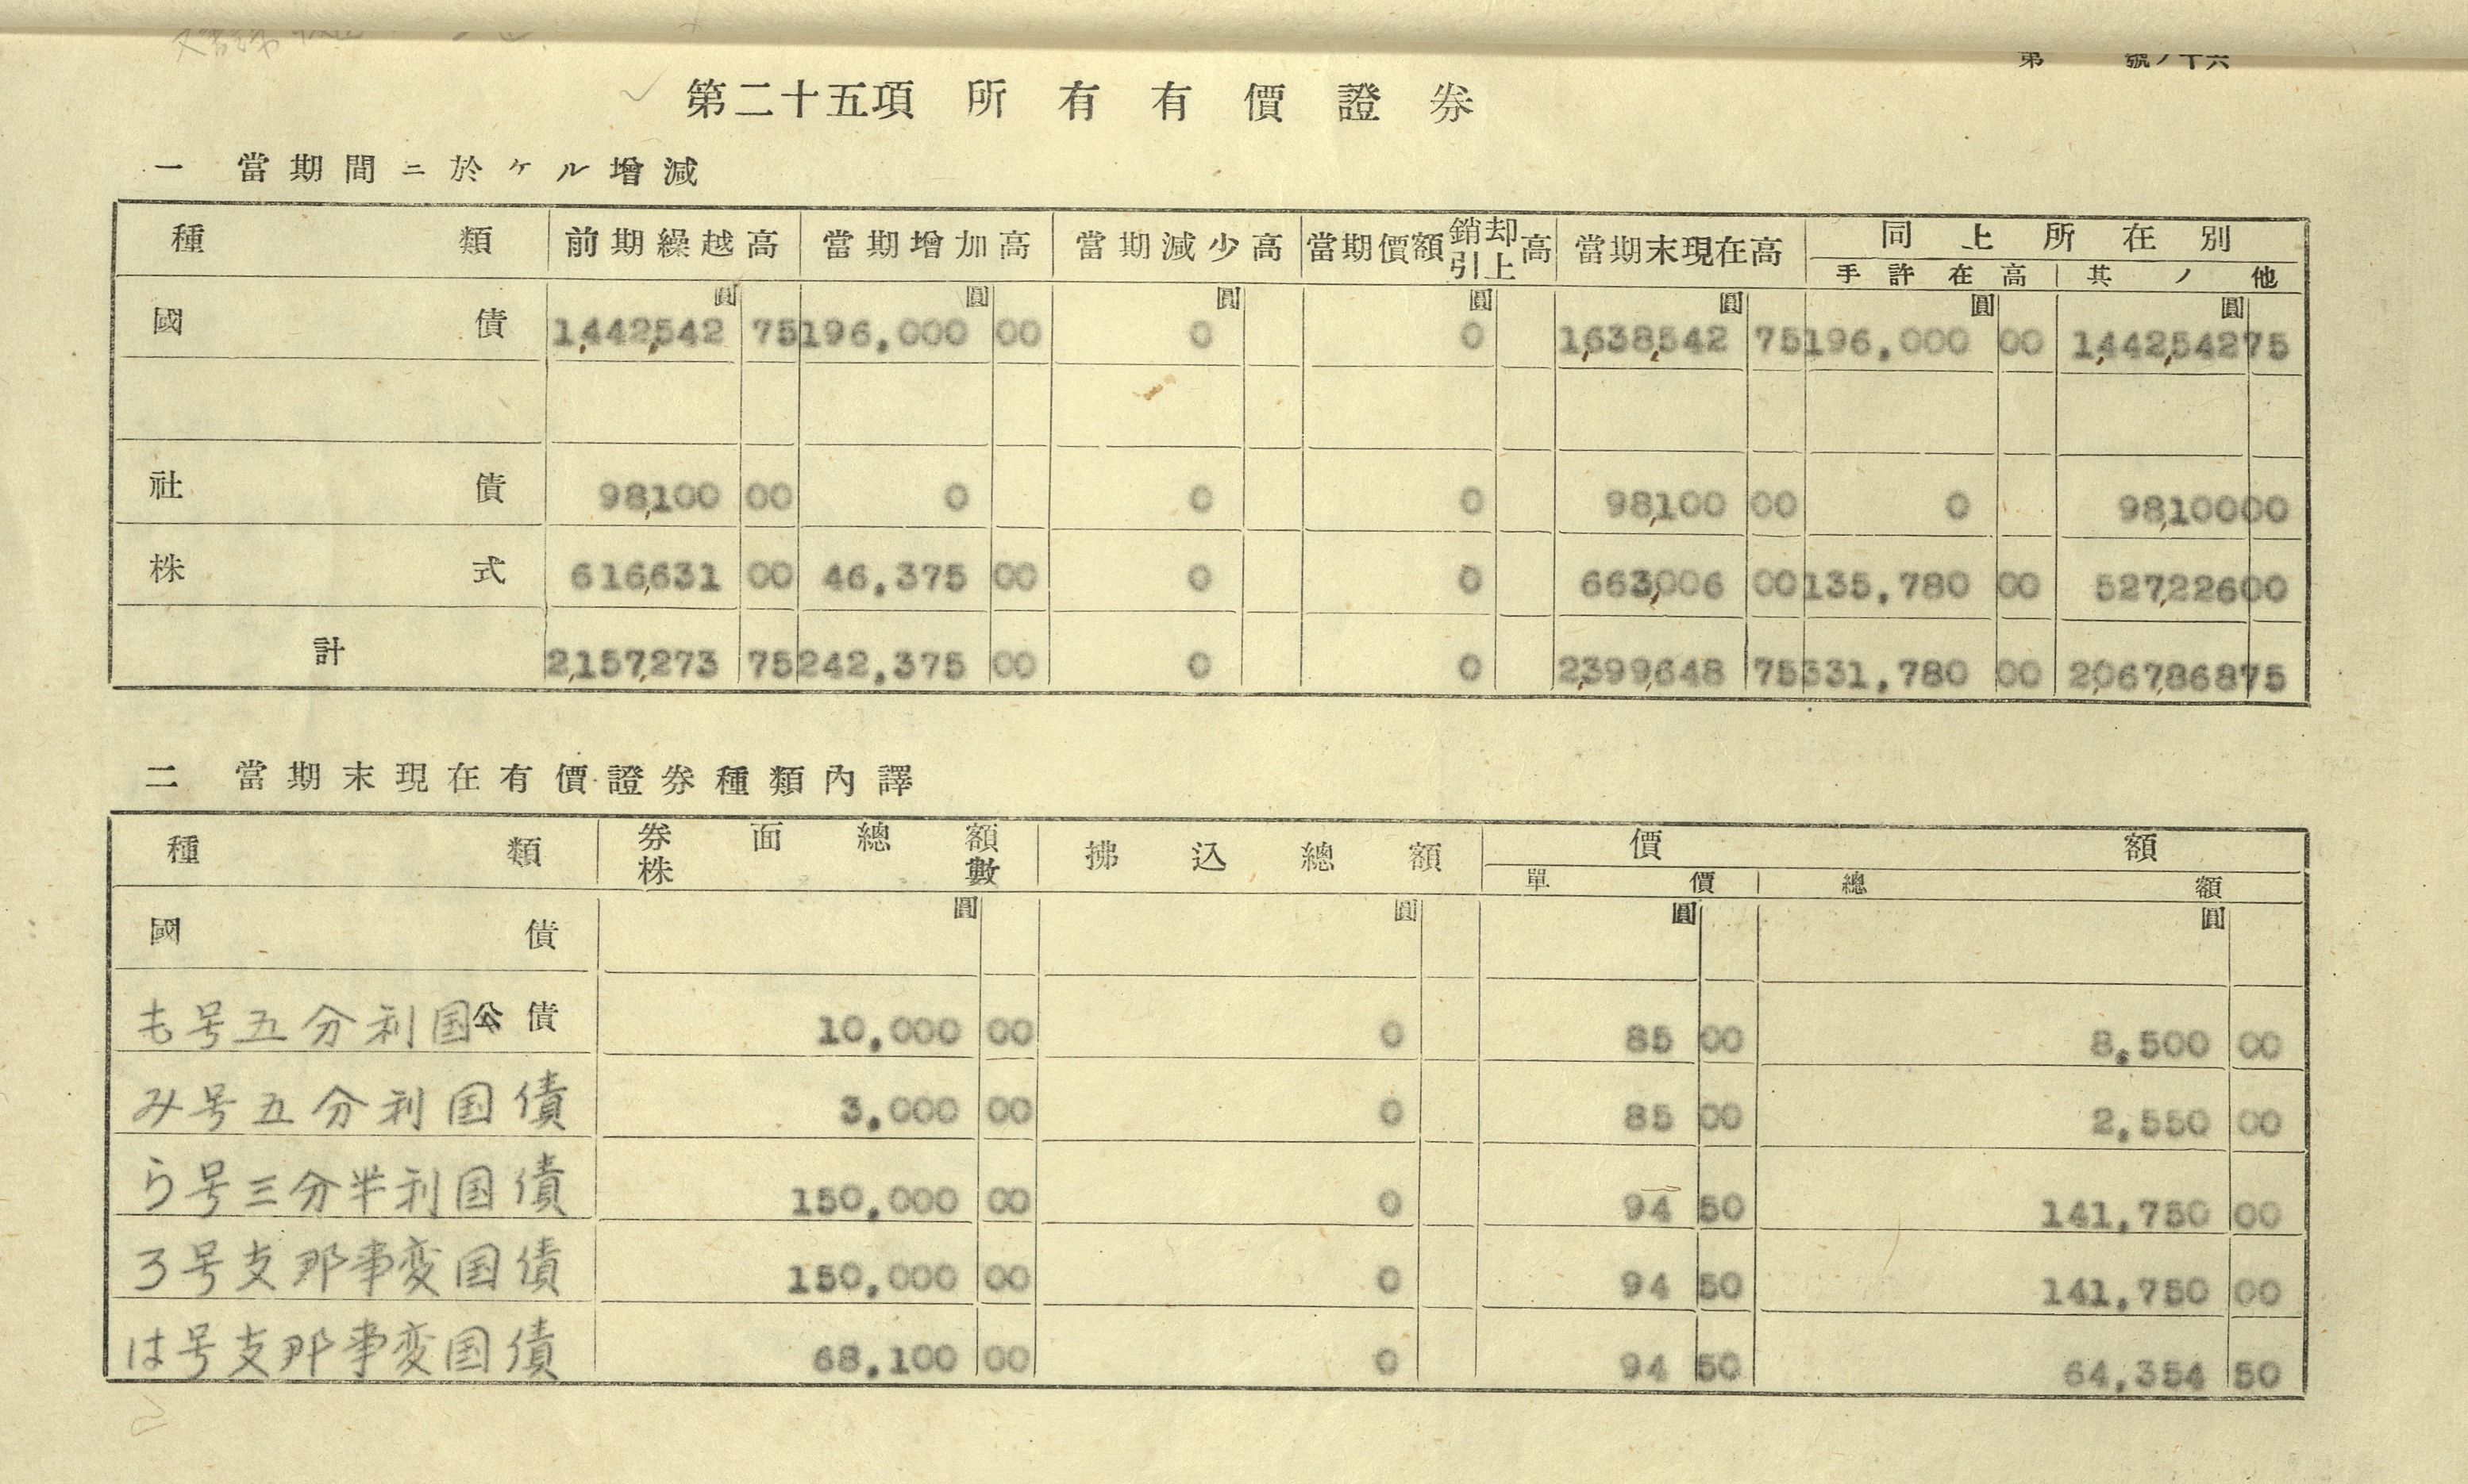 第二十五項 所有有價證券
一 當期間ニ於ケル增減
種類 前期繰越高 當期增加高 當期減少高 當期價額銷却引上高 當期末現在高 同上所在別
手許在高 其ノ他
圓 圓 圓 圓 圓 圓 圓
國債 1,442,542 75 196,000 00 0 0 1,638,542 75 196,000 00 1,442,542 75
社債 98,100 00 0 0 0 98,100 00 0 98,100 00
株式 616,631 00 46,375 00 0 0 663,006 00 135,780 00 527,226 00
計 2,157,273 75 242,375 00 0 0 2,399,648 75 331,780 00 2,067,868 75
二 當期末現在有價證券種類內譯
種類 券面總額 拂込總額 價額
株數 單價 總額
圓 圓 圓 圓
國債
も号五分利国公債 10,000 00 0 85 00 8,500 00
み号五分利国債 3,000 00 0 85 00 2,550 00
ら号三分半利国債 150,000 00 0 94 50 141,750 00
ろ号支那事変国債 150,000 00 0 94 50 141,750 00
は号支那事変国債 68,100 00 0 94 50 64,354 50